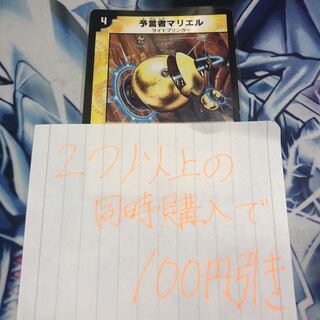 4
予言者マリエル
ライトブリンガー
2つ以上の
同時購入で
100円引き